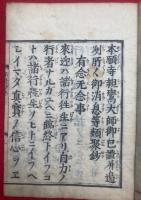 本願寺親鸞大師御己證并邊
州所々御消息等類聚鈔
有念无念事
來迎ハ諸行往生ニアリ自力ノ
行者ナルカユヘニ臨終トイフコ
トハ諸行往生ノヒトニイフヘ
シイマタ眞實ノ信心ヲエ